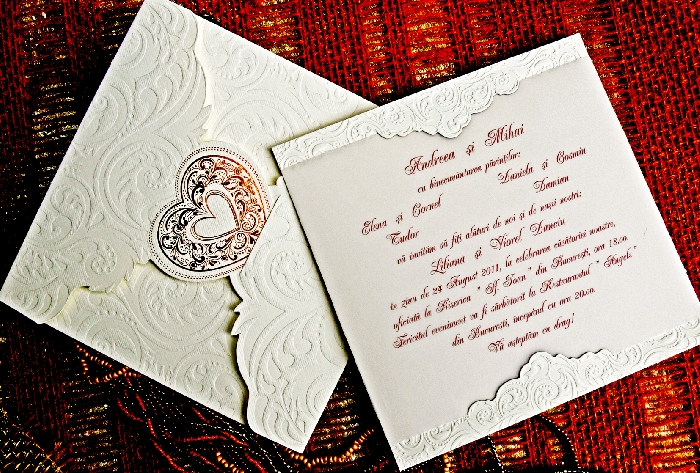 Andreea și Mihai
cu binecuvântarea părinților:
Elena și Cornel Daniela și Cosmin
Tudor Damian
vă invităm să fiți alături de noi și de nașii noștri:
Liliana și Viorel Danciu
în ziua de 23 August 2011, la celebrarea căsătoriei noastre,
oficiată la Biserica " Sf. Ioan " din București, ora 18.00.
Fericitul eveniment va fi sărbătorit la Restaurantul " Angels "
din București, începând cu ora 20.00.
Vă așteptăm cu drag!